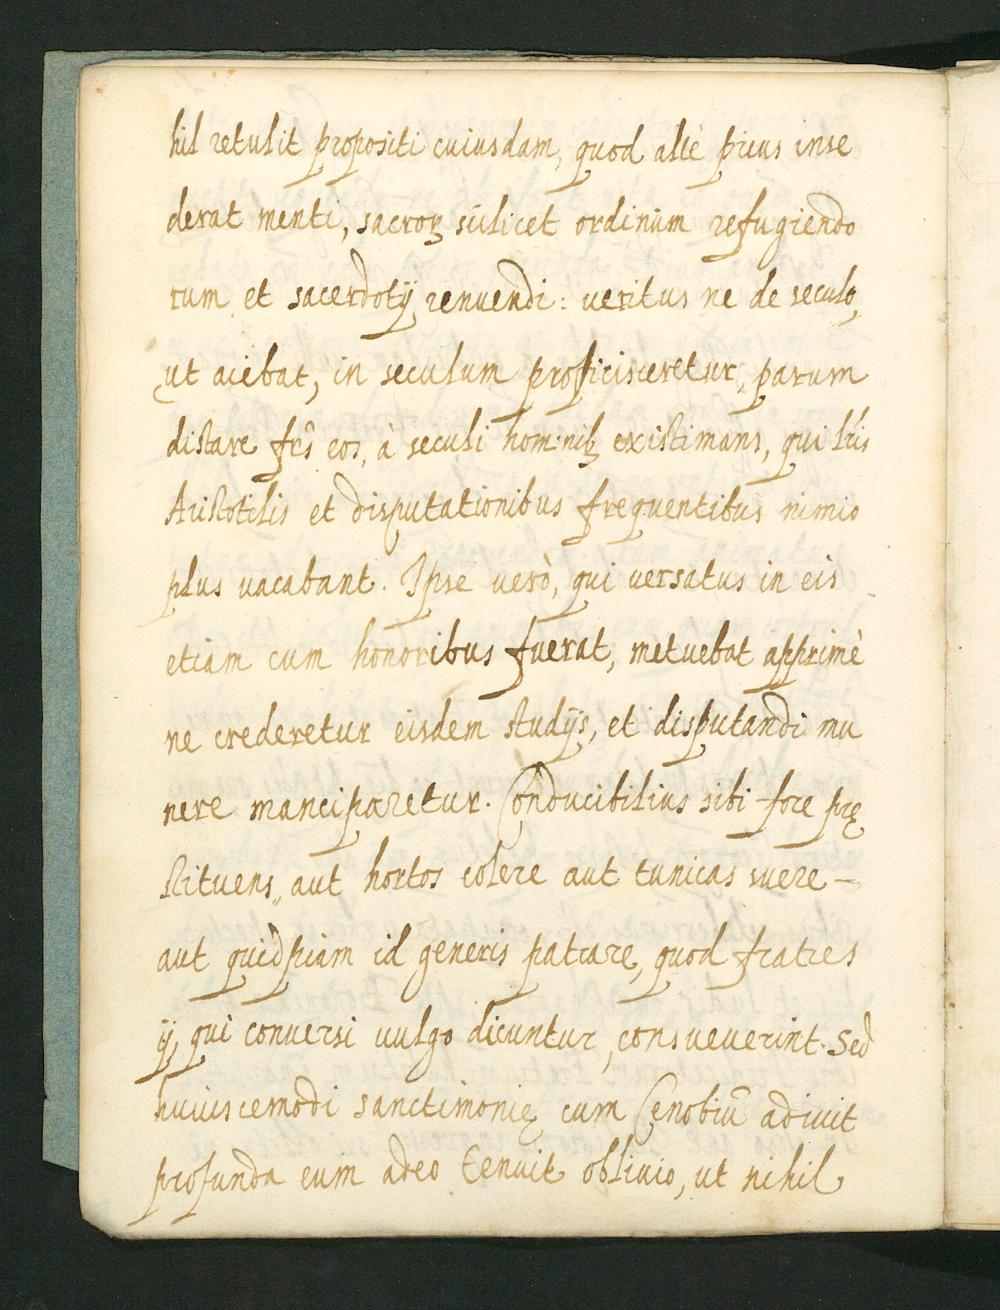 hil retulit propositi cuiusdam, quod altè prius inse
derat menti, sacroꝝ scilicet ordinum refugiendo
rum et sacerdotij renuendi: veritus ne de seculo,
ut aiebat, in seculum proficisceretur, parum
distare frẽs eos, à seculi hominibꝫ existimans, qui lr̃is
Aristotelis et disputationibus frequentibus nimio
plus vacabant. Ipse verò, qui versatus in eis
etiam cum honoribus fuerat, metuebat apprimè
ne crederetur eisdem studijs, et disputandi mu
nere manciparetur. Conducibilius sibi fore prę
stituens, aut hortos colere aut tunicas suere –
aut quidpiam id generis patrare, quod fratres
ij, qui conversi vulgo dicuntur, consueverint. Sed
huiuscemodi sanctimonię cum Cenobiũ adivit
profunda eum adeo tenuit oblivio, ut nihil